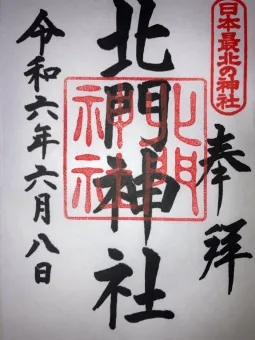 日本最北の神社
奉拝
北門神社
北門神社
令和六年六月八日